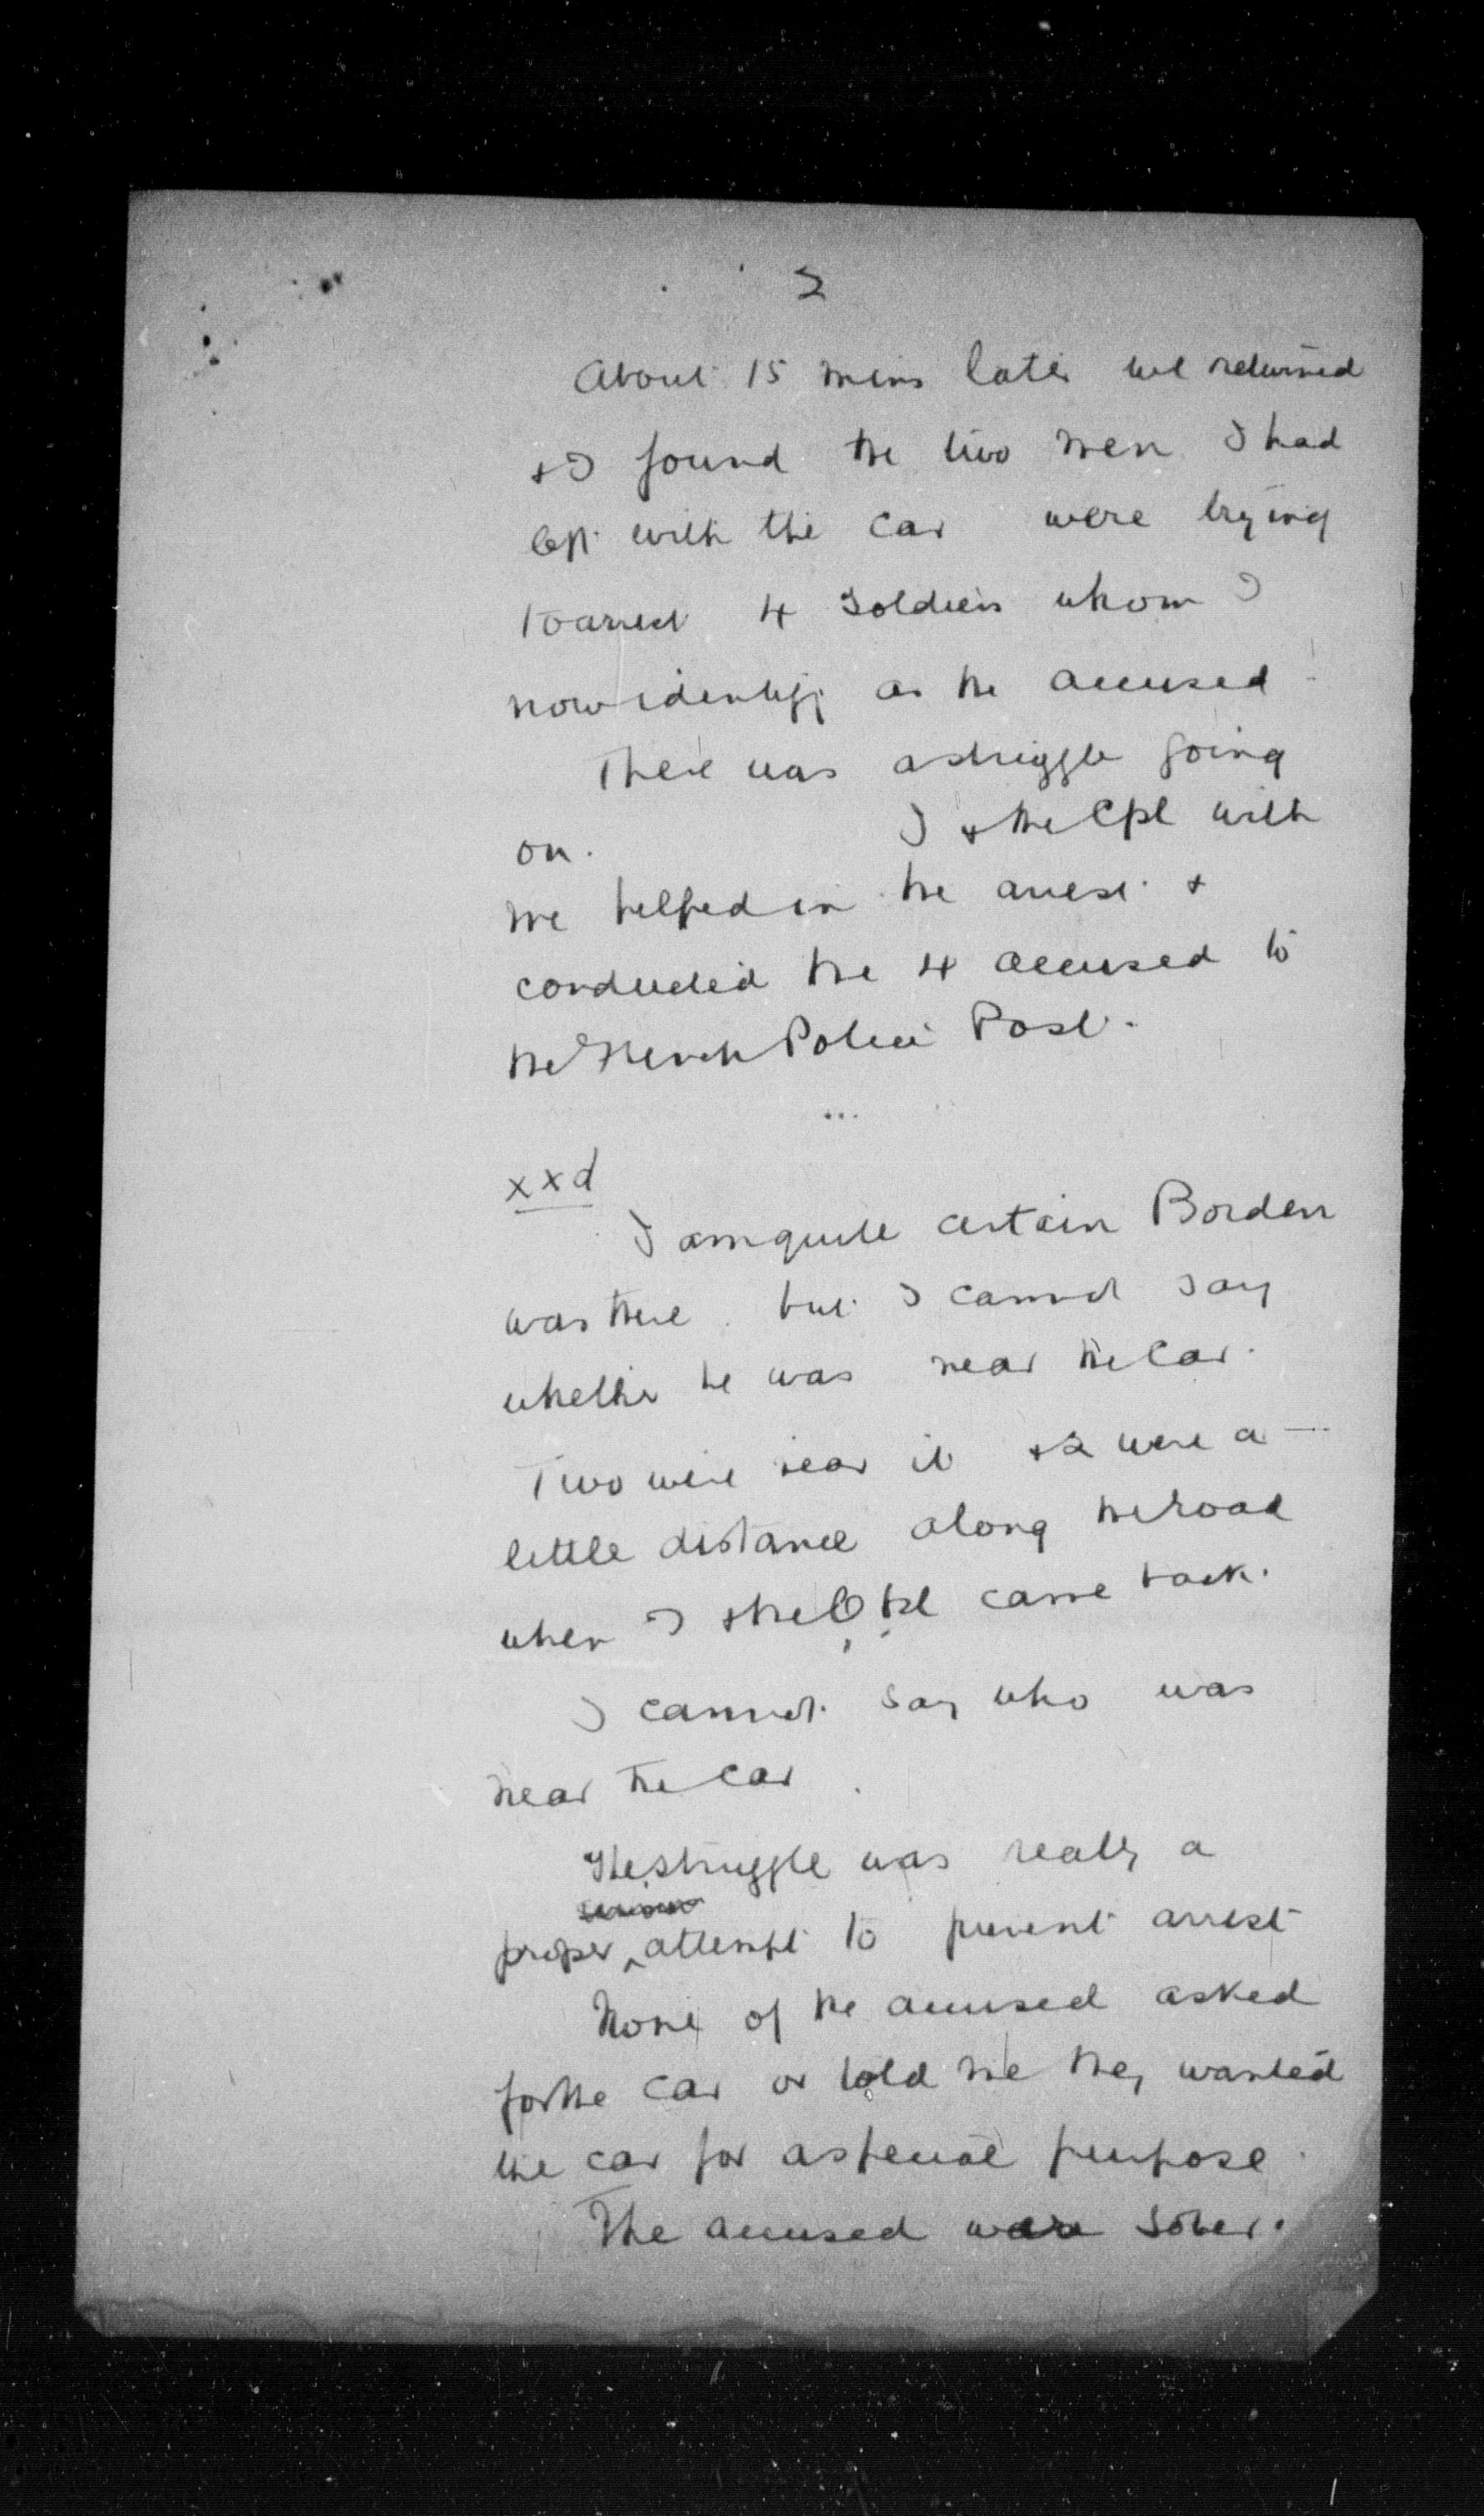 2
About 15 mins later we returned
+ I found the two men I had
left with the car were trying
to arrest 4 soldiers whom I
now identify as the accused
There was a struggle going
on. I + the Cpl with
me helped in the arrest +
conducted the 4 accused to
the French Police Post.
...
xxd
I am quite certain Borden
was there but I cannot say
whether he was near the car.
Two were near it + 2 were a
little distance along the road
when I + the Cpl came back.
I cannot say who was
near the car.
The struggle was really a
proper attempt to prevent arrest
None of the accused asked
for the car or told me they wanted
the car for a special purpose.
The accused were sober.